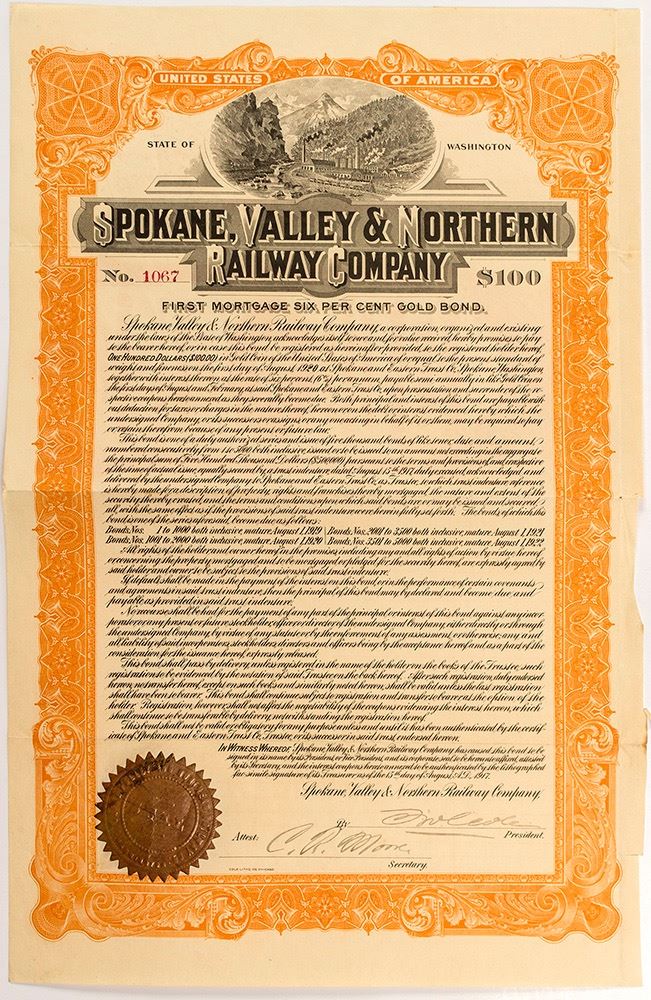 UNITED STATES OF AMERICA
STATE OF WASHINGTON
SPOKANE, VALLEY & NORTHERN
RAILWAY COMPANY
No. 1067 $100
FIRST MORTGAGE SIX PER CENT GOLD BOND.
Spokane Valley & Northern Railway Company, a corporation, organized and existing
under the laws of the State of Washington, acknowledges itself to owe and for value received, hereby promises to pay
to the bearer hereof, or in case this bond be registered as hereinafter provided, to the registered holder hereof
ONE HUNDRED DOLLARS ($100.00) in Gold Coin of the United States of America of or equal to the present standard of
weight and fineness on the first day of August 1920 at Spokane and Eastern Trust Co. Spokane, Washington
together with interest hereon at the rate of six per cent (6%) per annum, payable semi-annually in like Gold Coin on
the first days of August and February, at said Spokane and Eastern Trust Co. upon presentation and surrender of the re-
spective coupons hereto annexed as they severally become due. Both principal and interest of this bond are payable with-
out deduction for taxes or charges in the nature thereof, hereon or on the debt or interest evidenced hereby which the
undersigned Company, or its successors or assigns, or any one acting in behalf of it or them, may be required to pay
or retain therefrom because of any present or future law.
This bond is one of a duly authorized series and issue of five thousand bonds of like tenor, date and amount,
numbered consecutively from 1 to 5000 both inclusive, issued or to be issued to an amount not exceeding in the aggregate
the principal sum of Five Hundred Thousand Dollars ($500,000) pursuant to the terms and provisions of, and irrespective
of the time of actual issue, equally secured by a trust indenture, dated August 15th 1917, duly executed, acknowledged and
delivered by the undersigned Company to Spokane and Eastern Trust Co. as Trustee, to which trust indenture reference
is hereby made for a description of property, rights and franchises thereby mortgaged, the nature and extent of the
security thereby created, and the terms and conditions upon which said bonds are or may be issued and secured,
all with the same effect as if the provisions of said trust indenture were herein fully set forth. The bonds of which this
bond is one of the series aforesaid, become due as follows:
Bonds, Nos. 1 to 1000 both inclusive, mature, August 1, 1919 Bonds, Nos. 2001 to 3500 both inclusive, mature, August 1, 1921
Bonds, Nos. 1001 to 2000 both inclusive, mature, August 1, 1920 Bonds, Nos. 3501 to 5000 both inclusive, mature, August 1, 1922
All rights of the holder and owner hereof in the premises, including any and all rights of action by virtue hereof
or concerning the property mortgaged and to be mortgaged or pledged for the security hereof, are expressly agreed by
said holder and owner to be subject to the provisions of said trust indenture.
If default shall be made in the payment of the interest on this bond, or in the performance of certain covenants
and agreements in said trust indenture, then the principal of this bond may by declared and become due and
payable as provided in said trust indenture.
No recourse shall be had for the payment of any part of the principal or interest of this bond against any incor-
porator or any present or future stockholder, officer or director of the undersigned Company, either directly or through
the undersigned Company by virtue of any statute or by the enforcement of any assessment, or otherwise, any and
all liability of said incorporators, stockholders, directors and officers being by the acceptance hereof and as a part of the
consideration for the issuance hereof, expressly released.
This bond shall pass by delivery, unless registered in the name of the holder on the books of the Trustee, such
registration to be evidenced by the notation of said Trustee on the back hereof. After such registration, duly endorsed
hereon, no transfer hereof, except on such books and similarly noted hereon, shall be valid unless the last registration
shall have been to bearer. This bond shall continue subject to registration and transfer to bearer at the option of the
holder. Registration, however, shall not affect the negotiability of the coupons evidencing the interest hereon, which
shall continue to be transferable by delivery, notwithstanding the registration hereof.
This bond shall not be valid or obligatory for any purpose unless and until it has been authenticated by the certif-
icate of Spokane and Eastern Trust Co., Trustee, or its successor in said trust, endorsed hereon.
IN WITNESS WHEREOF, Spokane, Valley & Northern Railway Company has caused this bond to be
signed in its name by its President, or Vice President, and its corporate seal to be hereunto affixed, attested
by its Secretary, and the interest coupons hereto annexed to be authenticated by the lithographed
fac-simile signature of its Treasurer as of the 15th day of August A.D. 1917.
Spokane, Valley & Northern Railway Company,
By
President.
Attest: C. R. Moore
Secretary.